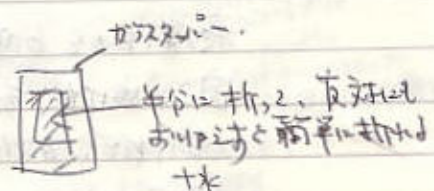 ガラスタッパー.
半分に折って、反対にも
おりかえすと簡単に折れる
+水